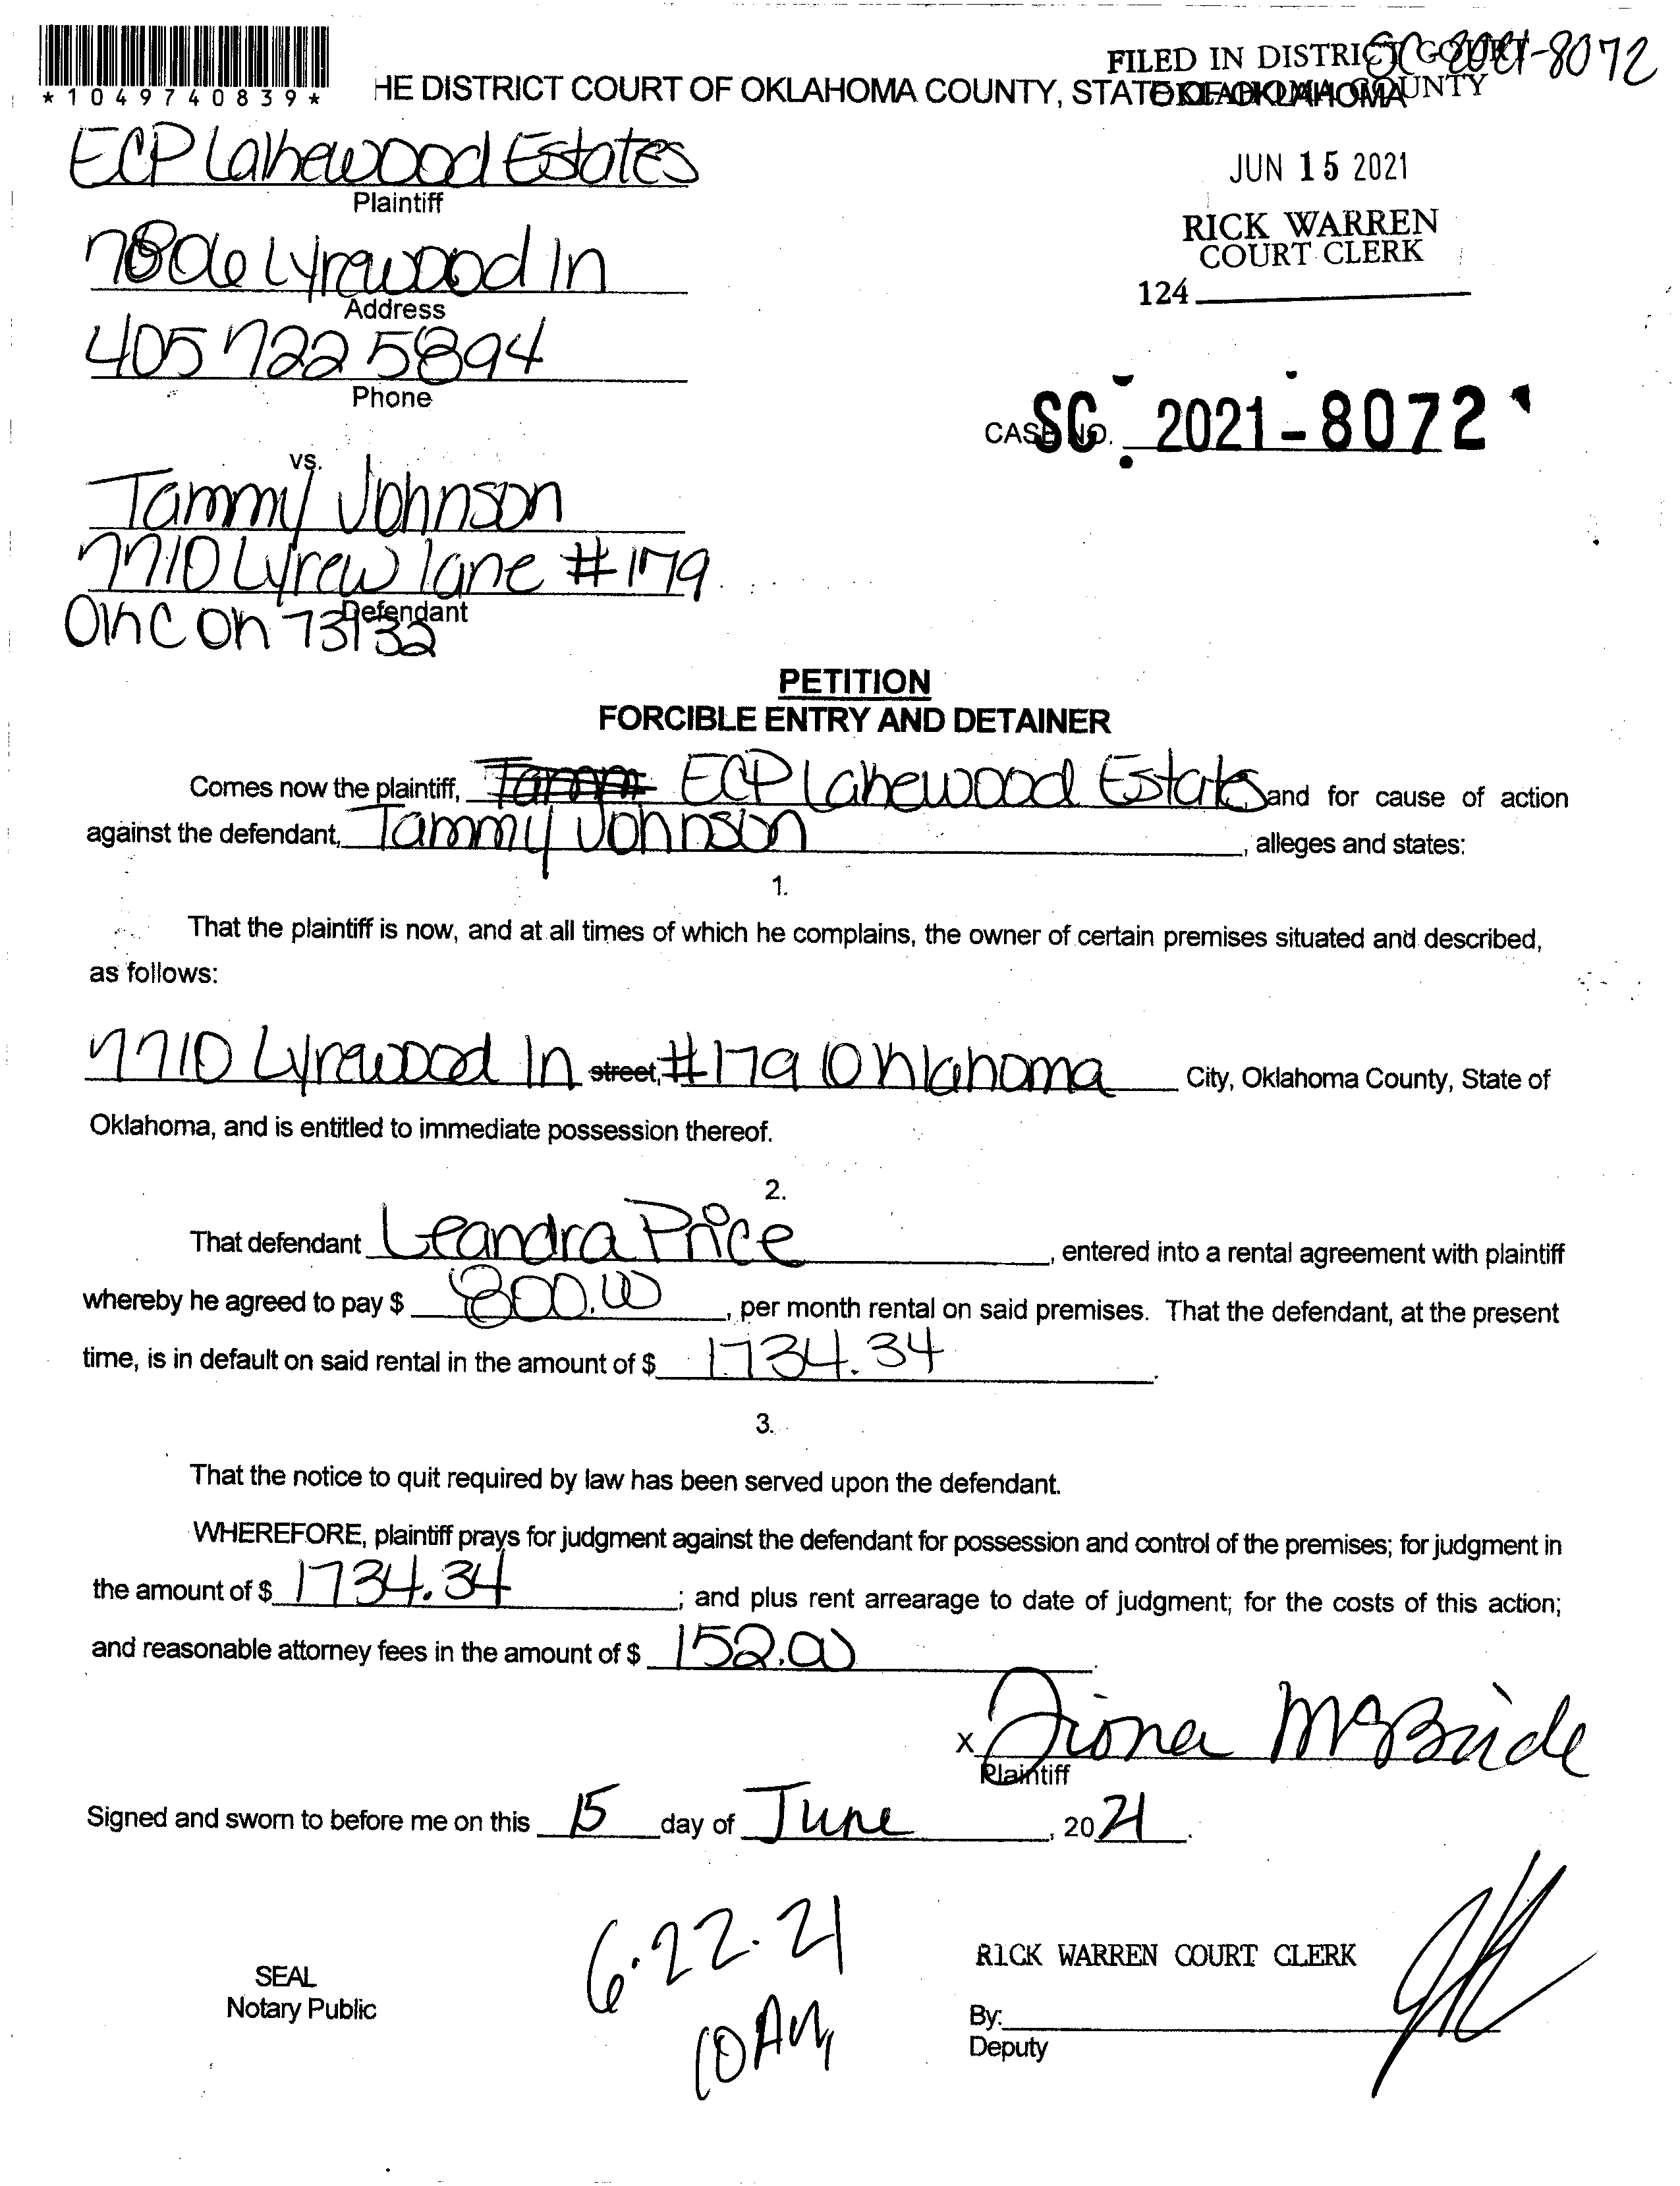 *1049740839*
FILED IN DISTRICT COURT
SC-2021-8072
HE DISTRICT COURT OF OKLAHOMA COUNTY, STATE OF OKLAHOMA
OKLAHOMA COUNTY
ECP Lakewood Estates
Plaintiff
JUN 15 2021
RICK WARREN
COURT CLERK
124
7806 Lyrewood ln
Address
405 722 5894
Phone
CASE NO. SC-2021-8072
vs.
Tammy Johnson
7710 Lyrew lane #179
Defendant
OKC OK 73132
PETITION
FORCIBLE ENTRY AND DETAINER
Comes now the plaintiff, ECP Lakewood Estates and for cause of action
against the defendant, Tammy Johnson, alleges and states:
1.
That the plaintiff is now, and at all times of which he complains, the owner of certain premises situated and described,
as follows:
7710 Lyrewood ln street, #179 Oklahoma City, Oklahoma County, State of
Oklahoma, and is entitled to immediate possession thereof.
2.
That defendant Leandra Price, entered into a rental agreement with plaintiff
whereby he agreed to pay $ 800.00, per month rental on said premises. That the defendant, at the present
time, is in default on said rental in the amount of $ 1734.34.
3.
That the notice to quit required by law has been served upon the defendant.
WHEREFORE, plaintiff prays for judgment against the defendant for possession and control of the premises; for judgment in
the amount of $ 1734.34; and plus rent arrearage to date of judgment; for the costs of this action;
and reasonable attorney fees in the amount of $ 152.00.
x Fiona McBride
Plaintiff
Signed and sworn to before me on this 15 day of June, 2021.
6.22.21
10 AM
SEAL
Notary Public
RICK WARREN COURT CLERK
By:
Deputy